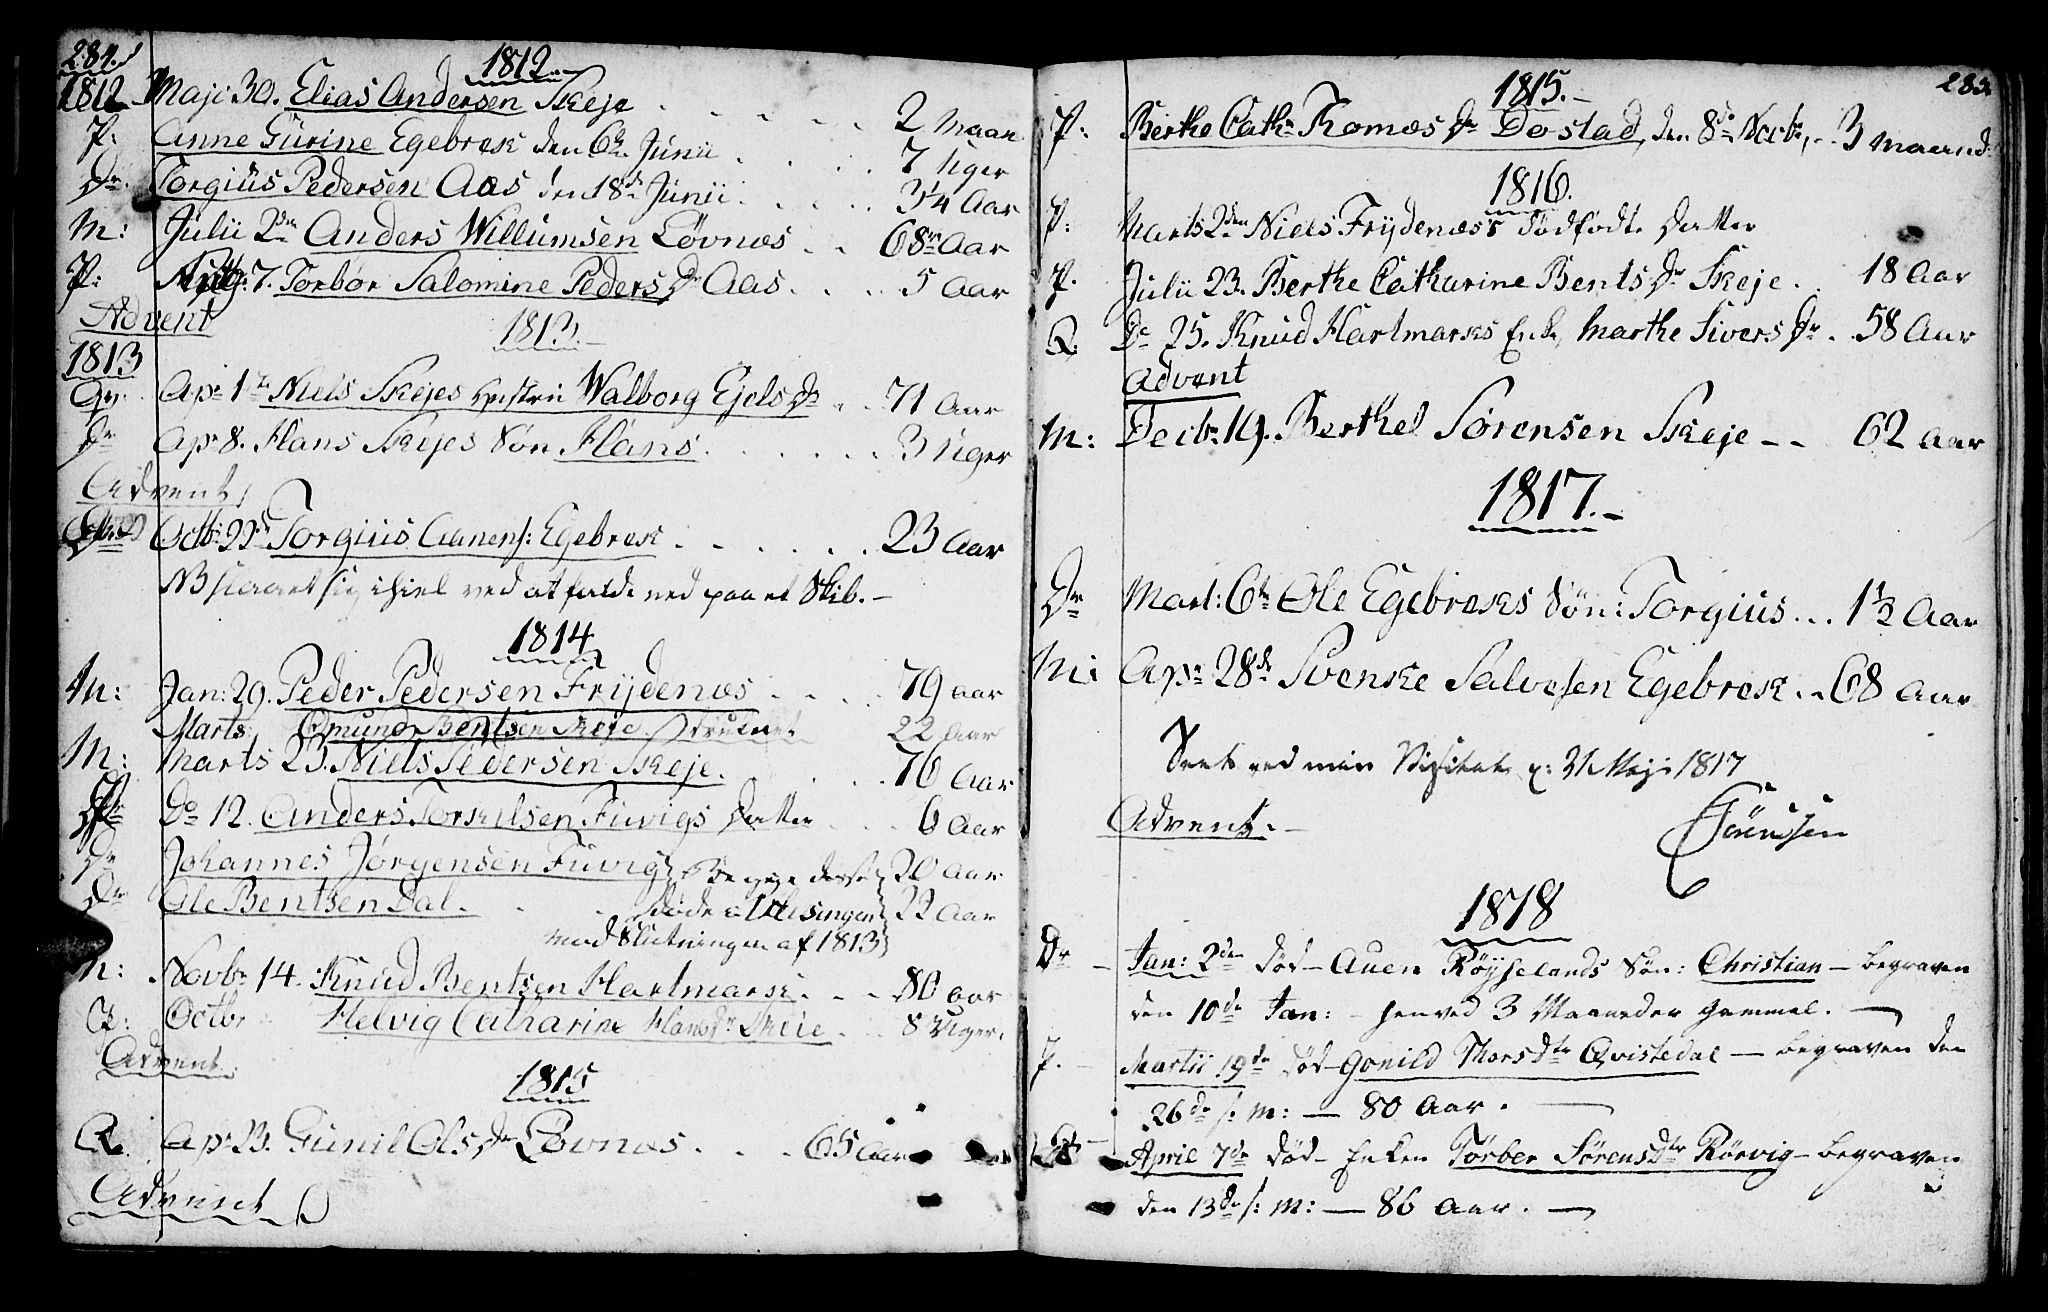 284.
1812
1812 Maji 30. Elias Andersen Skeje . . . . . 2 Maan
P: Anne Gurine Egebrek den 6te Junii . . . . 7 Uger
Dr. Torgius Pedersen Aas den 18de Junii . . . . 3/4 Aar
M: Julii 2den Anders Willumsen Løvnæs . . 68 Aar
P: 7. Torbør Salomine Peders Dr Aas . . . . 5 Aar
Advent
1813.
1813
Qv. Apr 1te Niels Skejes Hustru Walborg Ejels Dr . . 71 Aar
Dr Apr 8. Hans Skejes Søn Hans . . . . . . 3 Uger
Advent
Octb: 22de Torgius Aanens: Egebrek . . . . . . 23 Aar
NB slaaet sig ihiel ved at falde ned paa et Skib. –
1814
M: Jan: 29. Peder Pedersen Frydenæs . . . . 79 aar
Marts. Omund Bentsen Skeje druknet 22 Aar
M: Marts 23. Niels Pedersen Skeje. . . . . 76 Aar
Do 12. Anders Torkilsen Fuvigs Datter . . . 6 Aar
Dr Johannes Jørgensen Fuvig Begge disse 20 Aar
Dr Ole Bentsen Dal. . . . døde i Slutningen af 1813 22 Aar
M: Novbr 14. Knud Bentsen Hartmark. . . . 80 aar
P: Octbr Helvig Catharine Hansdr Skeie . . 8 Uger.
Advent.
1815
Q. Apr 23. Gunil Ols Dr Løvnæs. . . . 65 Aar
Advent
285.
1815. –
P: Berthe Cath: Tomæs Dr Dostad, den 8de Novbr, . . 3 maaned:
1816.
P: Marts 2den Niels Frydenæss dødfødte Datter
P. Julii 23. Berthe Catharine Bents Dr Skeje . . 18 Aar
Q. Do 25. Knud Hartmarks Enke, Marthe Sivers Dr . 58 Aar
Advent
M: Decbr 19. Berthel Sørensen Skeje – – 62 Aar
1817. –
Dr Mart: 6te Ole Egebreks Søn: Torgius . . . 1 1/2 Aar
M: Apr 28de Svenke Salvesen Egebrek . . 68 Aar
Seet ved min Visitats d: 21 Maji 1817
Sörenssen
Advent. –
1818
Dr – Jan: 2den død – Auen Röyselands Søn: Christian – begraven
den 10de Jan: – henved 3 Maaneder gammel. –
P. – Martii 19de død – Gonild Thorsdtr Qvistedal – begraven den
26de s: m: – 80 Aar. –
April 7de død – Enken Tørber Sørensdtr Rörvig – begraven
den 13de s: m: – 86 Aar. –